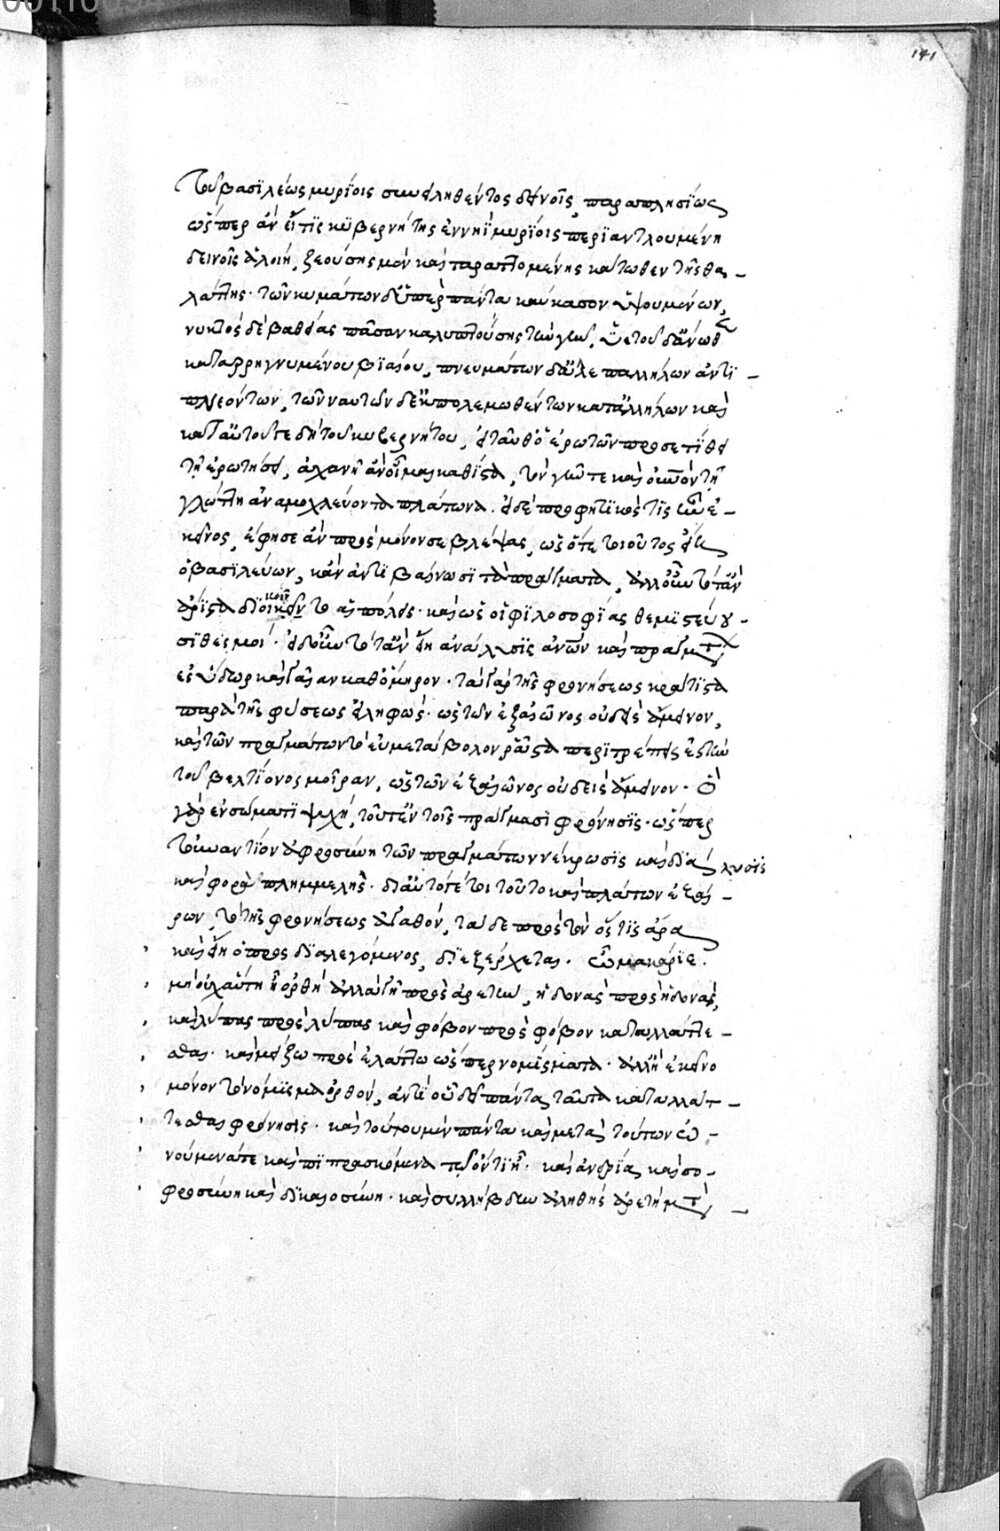 141
Τοῦ βασϊλέως μυρίοις συνειληθέντος δεινοῖς, παραπλησίως
ὥσπερ ἂν εἴ τϊς κϋβερνήτης ἐν νηῒ μυρίοις περϊαντλουμένη
δεινοῖς ἁλοίη, ζεούσης μὲν καὶ παραπτομένης κάτωθεν τῆς θα-
λάττης· τῶν κυμάτων δ' ὑπὲρ πάντα καύκασον ὑψουμένων,
νυκτὸς δὲ βαθείας πᾶσαν καλυπτούσης τὴν γῆν, ὑετοῦ δ' ἄνωθεν
καταρρηγνυμένου βϊαίου, πνευμάτων δ' ἅμα παλλήλων ἀντϊ-
πλεόντων, τῶν ναυτῶν δ' ἐκπολεμωθέντων κατ' ἀλλήλων καὶ
κατ' αὐτοῦ τε δὴ τοῦ κυβερνήτου, εἶτ' αὖθ' ὁ ἐρωτῶν προσετίθει
τῇ ἐρωτήσει, ἀχανῆ ἂν οἶμαι καθίστα, τὸν γοῦν τε καὶ
γλώττη ἀναμοχλεύοντα πλάτωνα. εἰ δὲ προφητϊκός τϊς ἦν ἐ-
κεῖνος, ἔφησε ἂν πρὸς μόνον σε βλέψας, ὡς ὅτε τοιοῦτος εἴη
ὁ βασϊλεύων, κἂν ἀντϊβαίνωσϊ τὰ πράγματα, ἀλλ' οὖν τότ' ἂν
ἄρϊστα δϊοικοῖντο αἱ πόλεις· καὶ ὡς οἱ φϊλοσοφίας θεμϊστεύου-
σϊ θεσμοί· εἰ δ' οὖν τότ' ἂν εἴη ἀνάλυσϊς ἀνθρώπων καὶ πραγμάτων
εἰς ὕδωρ καὶ γαῖαν καθ' ὅμηρον· τὰ γὰρ τῆς φρονήσεως κράτϊστα
παρὰ τῆς φύσεως εἰληφώς· ὡς τῶν ἐξ αἰῶνος οὐδεὶς ἄμεινον,
καὶ τῶν πραγμάτων τὸ εὐμετάβολον ῥᾷστα περϊτρέπεις ἐς τὴν
τοῦ βελτίονος μοῖραν, ὡς τῶν ἐξ αἰῶνος οὐδεὶς ἄμεινον· ὃ
γὰρ ἐν σώματϊ ψυχή, τοῦτ' ἐν τοῖς πράγμασϊ φρόνησϊς· ὥσπερ
τοὐναντίον ἀφροσύνη τῶν πραγμάτων νέκρωσϊς καὶ δϊάλυσϊς
καὶ φορὰ πλημμελής· δϊ' αὐτό γέ τοι τοῦτο καὶ πλάτων ἐξαί-
ρων, τὸ τῆς φρονήσεως ἀγαθόν, τάδε πρὸς τὸν ὅστϊς ἄρα
καὶ εἴη ὁ προσδϊαλεγόμενος, δϊεξέρχεται. ὦ μακάρϊε.
μὴ οὐχ αὕτη ᾖ ὀρθὴ ἀλλαγὴ πρὸς ἀρετήν, ἡδονὰς πρὸς ἡδονάς,
καὶ λύπας πρὸς λύπας καὶ φόβον πρὸς φόβον καταλλάττε-
σθαι· καὶ μείζω πρὸς ἐλάττω ὥσπερ νομίσματα· ἀλλ' ᾖ ἐκεῖνο
μόνον τὸ νόμϊσμα ὀρθόν, ἀντὶ οὗ δεῖ πάντας ταῦτα καταλλάτ-
τεσθαι φρόνησις· καὶ τούτου μὲν πάντα καὶ μετὰ τούτων ὠ-
νούμενά τε καὶ πϊπρασκόμενα τῷ ὄντϊ ᾖ· καὶ ἀνδρία, καὶ σο-
φροσύνη καὶ δϊκαιοσύνη· καὶ συλλήβδην ἀληθὴς ἀρετὴ μετὰ